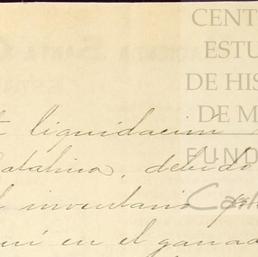 CENT
ESTU
DE HIS
DE M
FUND
liquidacion
Catalina, debido
el inventario
en el ganad